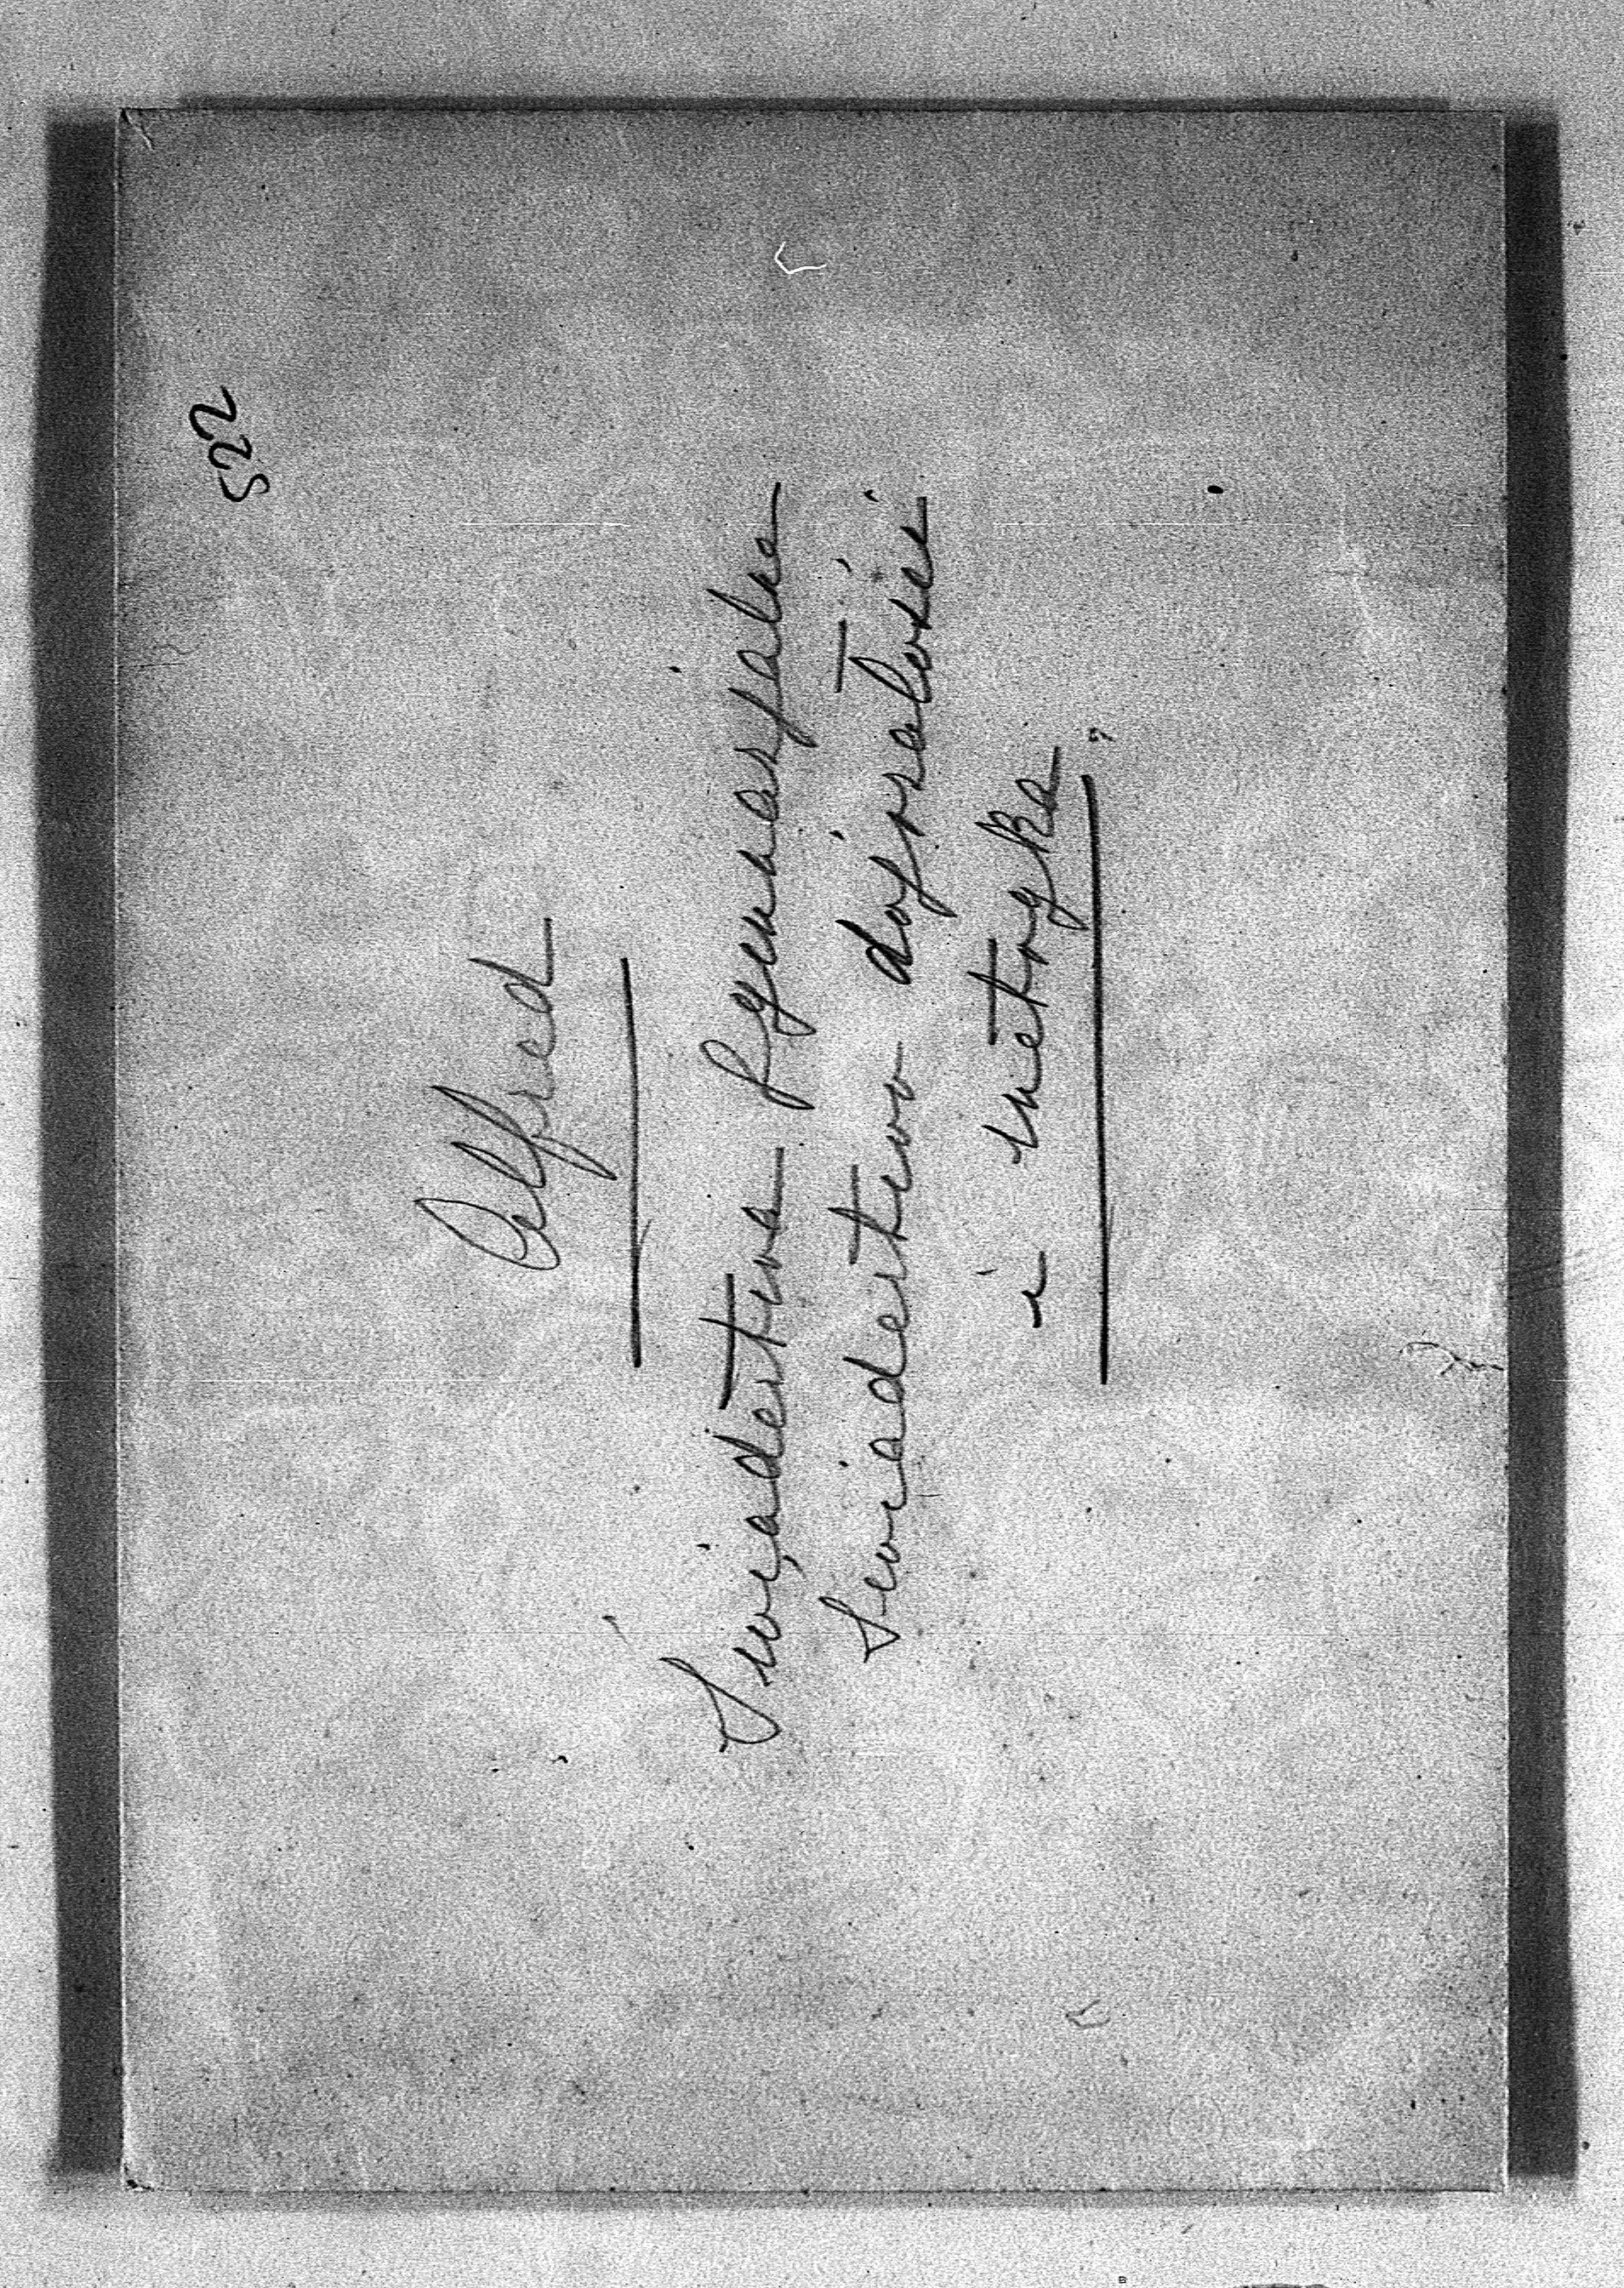 522
Alfred
Świadectwa gymnazjalne
Świadectwo dojrzałości
i metryka